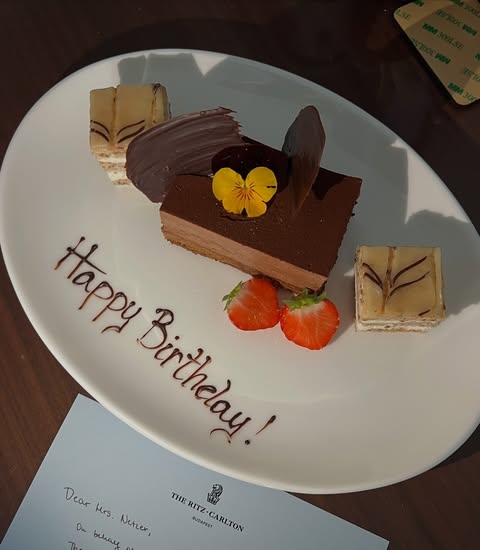 Happy Birthday!
THE RITZ-CARLTON
BUDAPEST
Dear Mrs. Netzer,
On behalf of